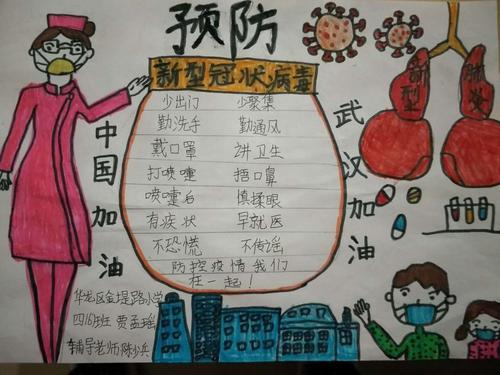 预防
新型冠状病毒
少出门 少聚集
勤洗手 勤通风
戴口罩 讲卫生
打喷嚏 捂口鼻
喷嚏后 慎揉眼
有疾状 早就医
不恐慌 不传谣
防控疫情我们
在一起！
中国加油
武汉加油
新型
肺炎
华龙区金堤路小学
四(6)班 贾孟瑶
辅导老师陈少兵